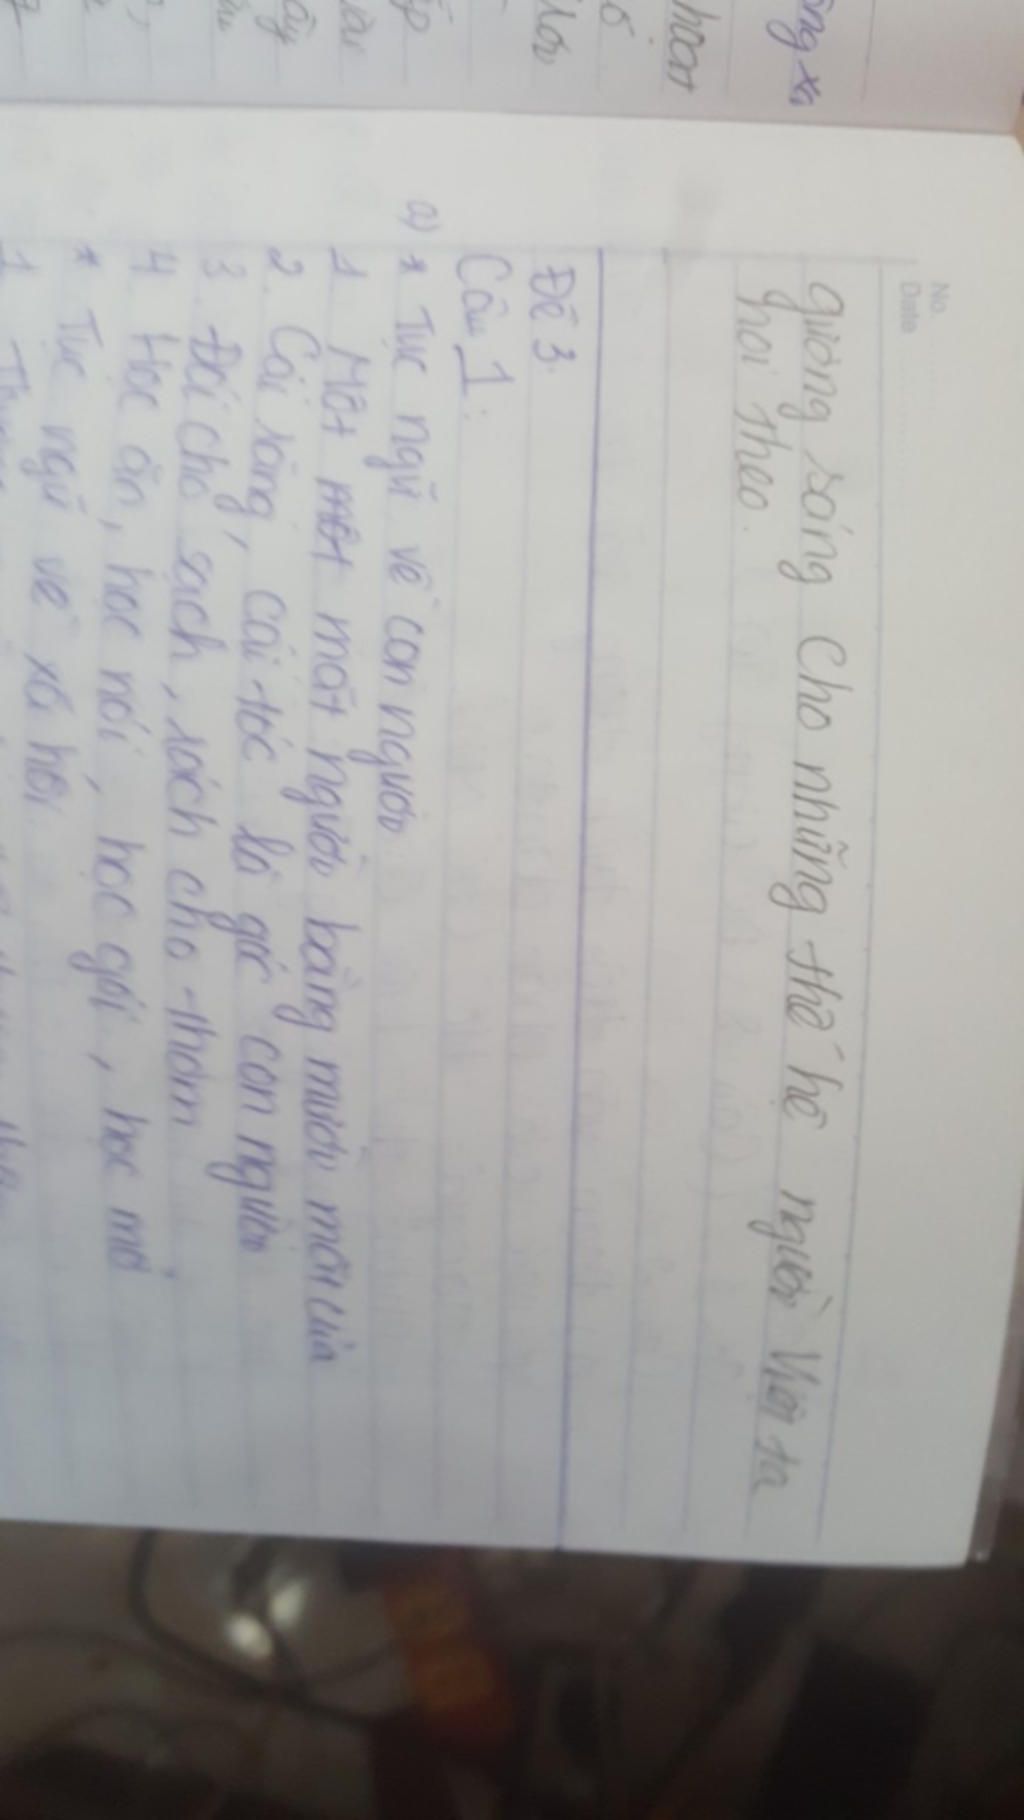 No.
Date
gương sáng cho những thế hệ người Việt ta
noi theo.
Đề 3.
Câu 1:
a) * Tục ngữ về con người
1 Một mặt người bằng mười mặt của
2. Cái răng, cái tóc là góc con người
3. Đói cho sạch, rách cho thơm
4 Học ăn, học nói, học gói, học mở
* Tục ngữ về xã hội
1